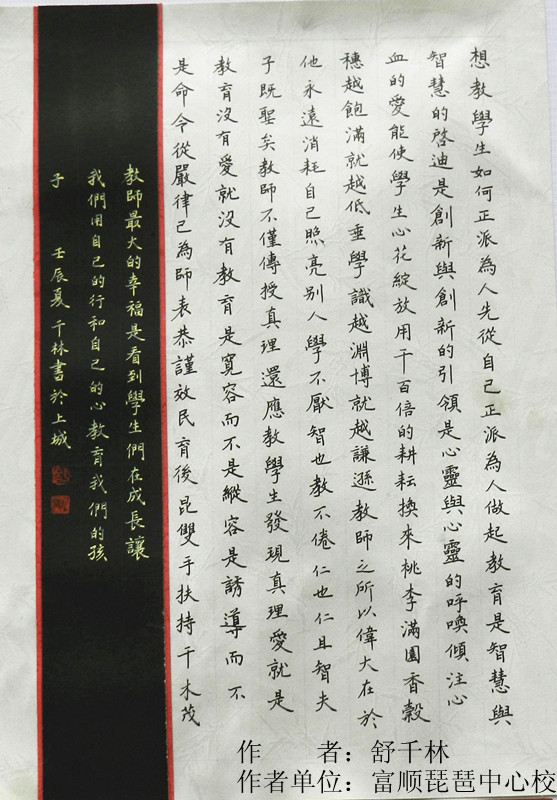 想教學生如何正派為人先從自己正派為人做起教育是智慧與
智慧的啓迪是創新與創新的引領是心靈與心靈的呼喚傾注心
血的愛能使學生心花綻放用千百倍的耕耘換來桃李滿園香穀
穗越飽滿就越低垂學識越淵博就越謙遜教師之所以偉大在於
他永遠消耗自己照亮别人學不厭智也教不倦仁也仁且智夫
子既聖矣教師不僅傳授真理還應教學生發現真理愛就是
教育沒有愛就沒有教育是寬容而不是縱容是誘導而不
是命令從嚴律己為師表恭謹效民育後昆雙手扶持千木茂
教師最大的幸福是看到學生們在成長讓
我們用自己的行和自己的心教育我們的孩
子
壬辰夏千林書於上城
作者：舒千林
作者单位：富顺琵琶中心校